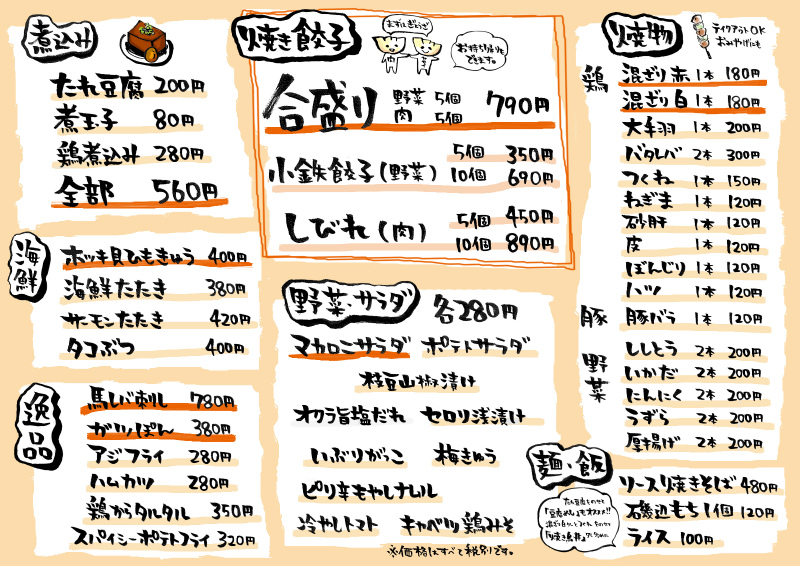 煮込み
たれ豆腐 200円
煮玉子 80円
鶏煮込み 280円
全部 560円
海鮮
ホッキ貝ひもきゅう 400円
海鮮たたき 380円
サーモンたたき 420円
タコぶつ 400円
逸品
馬レバ刺し 780円
ガツぽん 380円
アジフライ 280円
ハムカツ 280円
鶏からタルタル 350円
スパイシーポテトフライ 320円
焼き餃子
まずはぎょうざ
お持ち帰りもできます。
合盛り 野菜 5個 肉 5個 790円
小鉄餃子(野菜) 5個 350円
10個 690円
しびれ(肉) 5個 450円
10個 890円
野菜・サラダ 各280円
マカロニサラダ ポテトサラダ
枝豆山椒漬け
オクラ旨塩だれ セロリ浅漬け
いぶりがっこ 梅きゅう
ピリ辛もやしナムル
冷やしトマト キャベツ鶏みそ
※価格はすべて税別です。
焼物
テイクアウトOK
おみやげにも
鶏
混ざり赤 1本 180円
混ざり白 1本 180円
大手羽 1本 200円
バタレバ 2本 300円
つくね 1本 150円
ねぎま 1本 120円
砂肝 1本 120円
皮 1本 120円
ぼんじり 1本 120円
ハツ 1本 120円
豚
豚バラ 1本 120円
野菜
ししとう 2本 200円
いかだ 2本 200円
にんにく 2本 200円
うずら 2本 200円
厚揚げ 2本 200円
麺・飯
たれ豆腐をのせて
「豆腐めし」もオススメ!!
ソース焼きそば 480円
磯辺もち1個 120円
ライス 100円